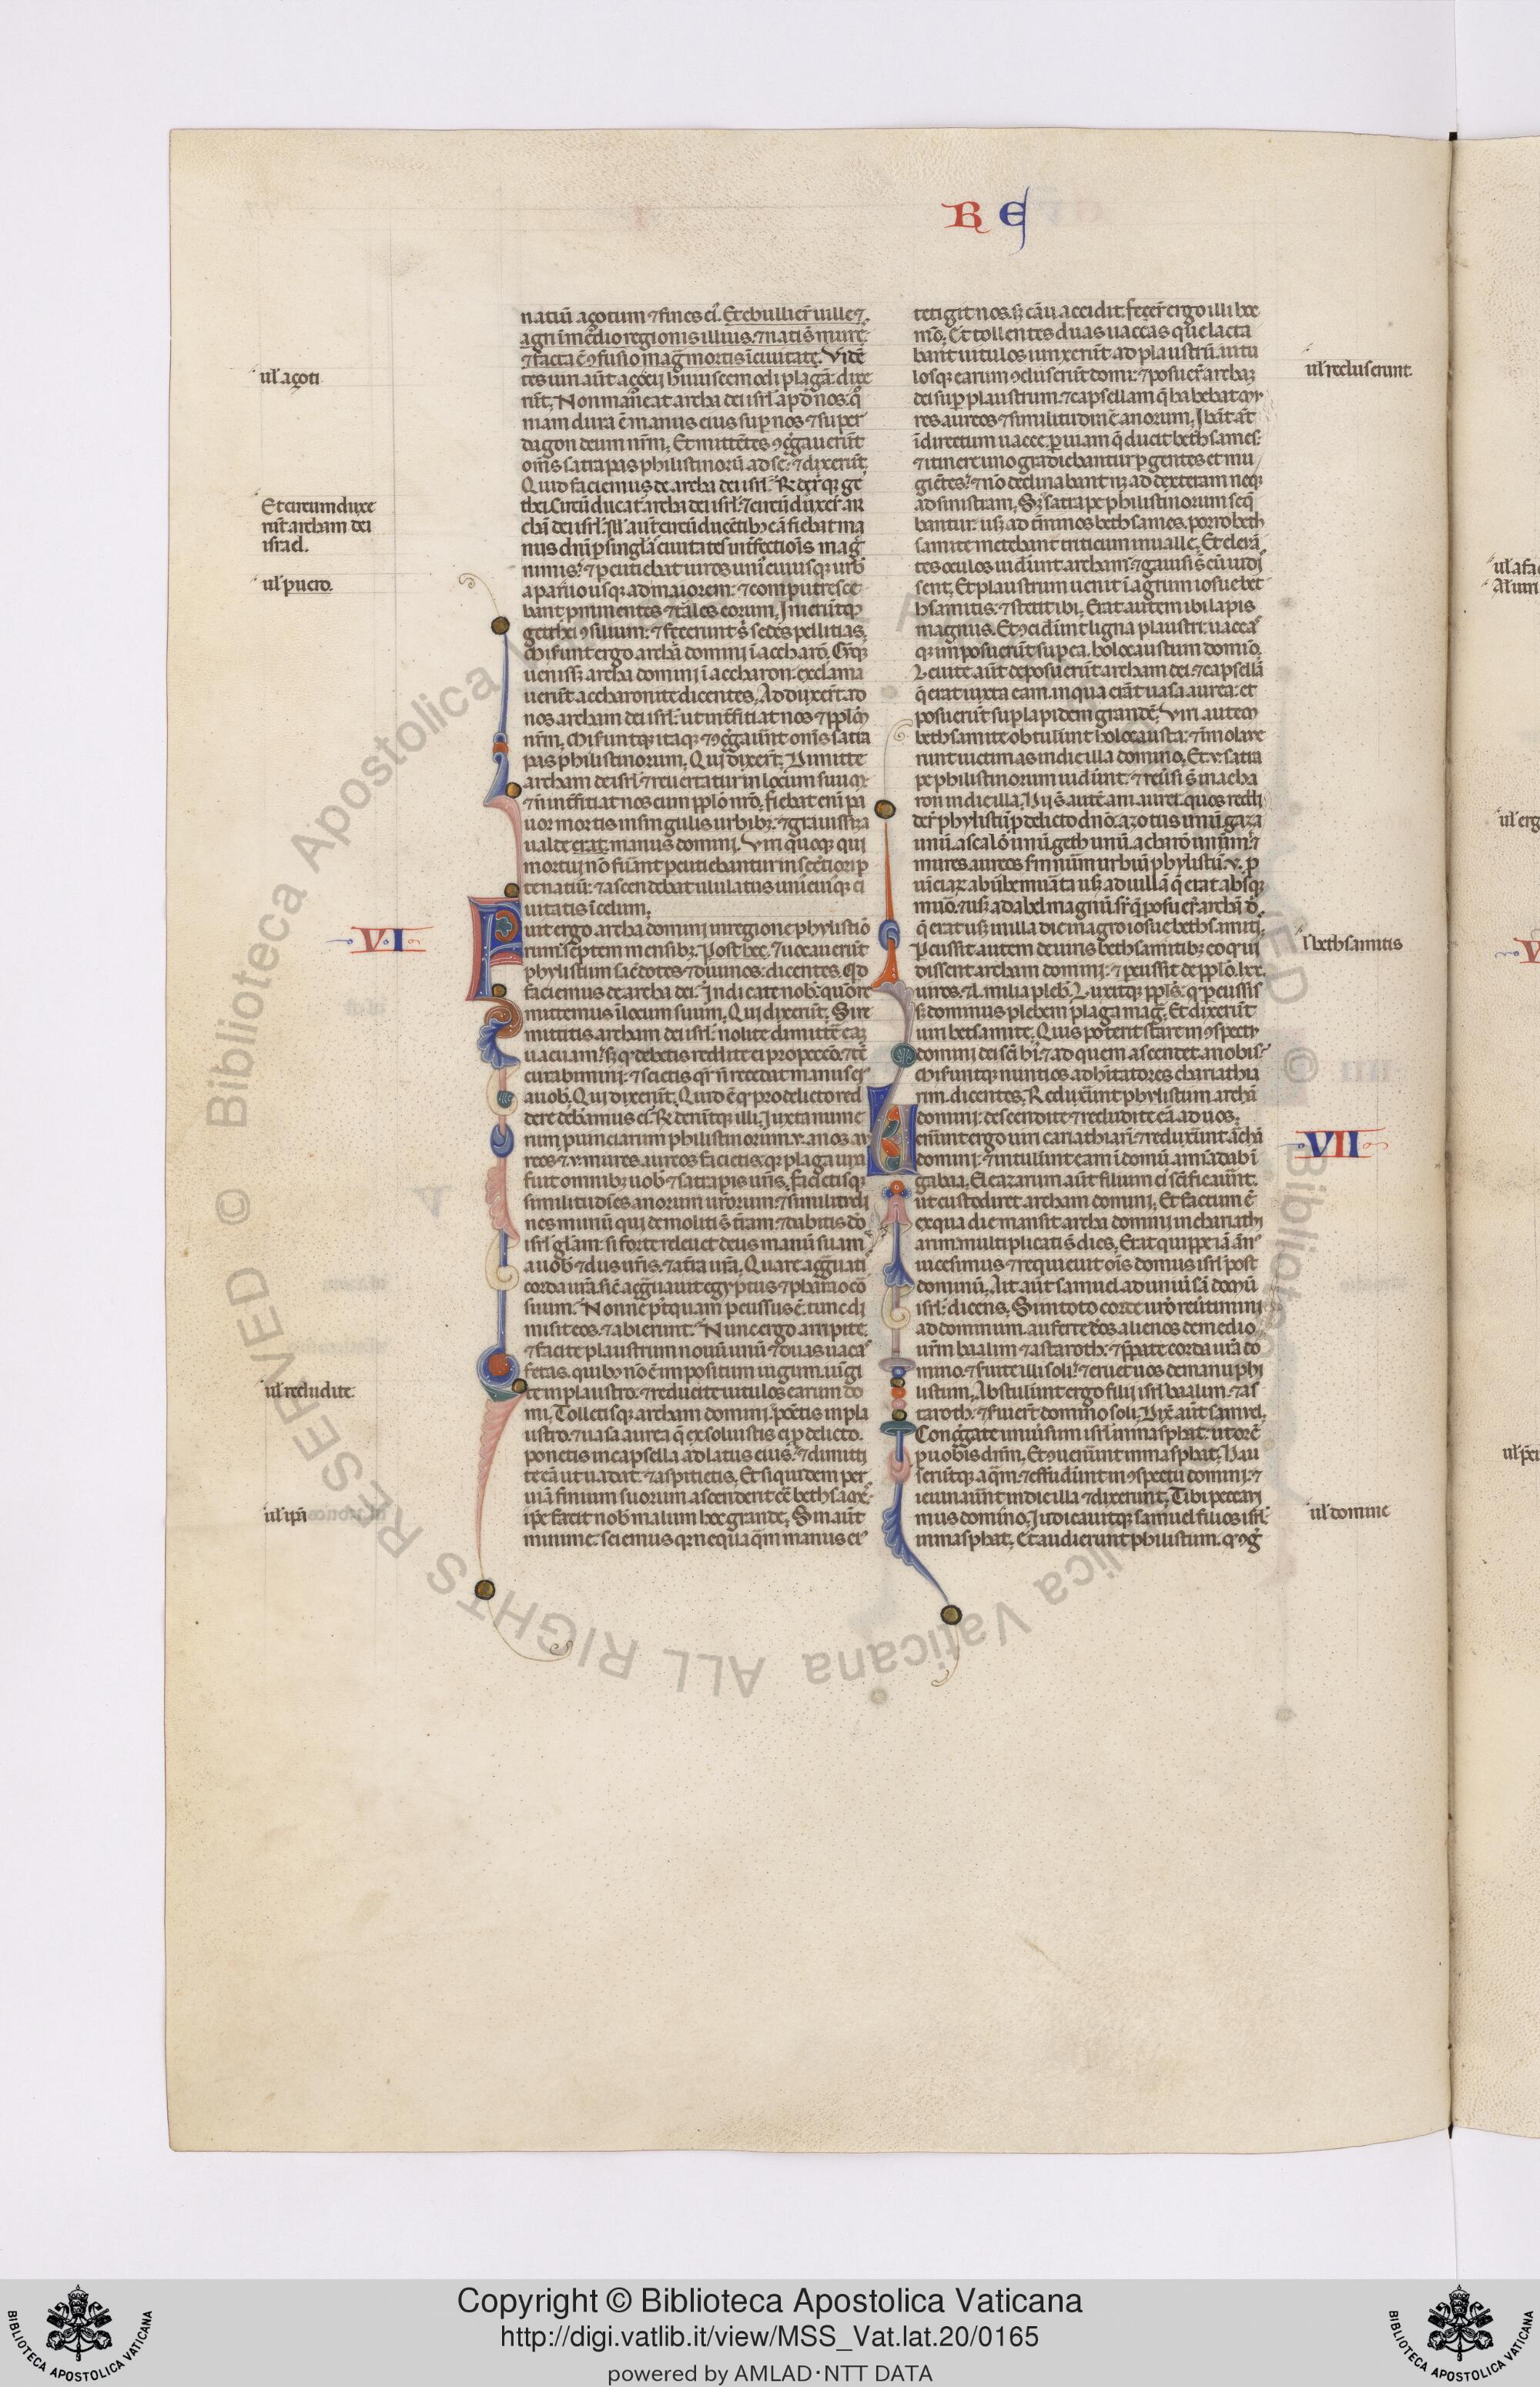 R E
natiuı̄ açotum ⁊ fines eı᷒. Et ebullier̄ uille ⁊
agri ī medio regionis illius. ⁊ nati s̄ mure
⁊ facta ē ꝯfusio mag̅ mortis ī ciuitate. Vidē
tes uiri aūt açocij huiuscemodi plagā: dixe
rūt. Non maneat archa dei isrl̄ apd̓ nos: qm̄
niam dura ē manus eius sup nos ⁊ super
dagon deum nr̄m. Et mittētes ꝯg̅gauerūt
om̄s satrapas philistinorū ad se: ⁊ dixerūt.
Quid faciemus de archa dei isrl̄. R̄derūtq̨ ge
thei. Circūducat᷑ archa dei isrl̄. ⁊ circūduxer̄ ar
chā dei isrl̄. Ill̓ aut̄ circūducētib; eā fiebat ma
nus dn̄i p singl̓as ciuitates īt̓fectiois mag̅
nimis. ⁊ pcutiebat uiros uniuscuiusq̨ urb̓
a paruo usq̨ ad maiorem: ⁊ computresce
bant pminentes ⁊ tales eorum. Inierūtq̨
gethei ꝯsilium: ⁊ fecerunt s̓ sedes pellitias.
Miserunt ergo archā domini ī accharō. Cūq̨
uenisset archa domini ī accharon: exclama
uerūt accharonite dicentes. Adduxer̄t ad
nos archam dei isrl̄: ut int̓ficiat nos ⁊ pplm̄
nr̄m. Miseruntq̨ itaq̨ ⁊ ꝯg̅gauer̄t om̄s satra
pas philistinorum. Qui dixer̄t. Dimitte
archam dei isrl̄ ⁊ reuertatur in locum suum
⁊ n̄ int̓ficiat nos cum pplo nr̄o. fiebat eni pa
uor mortis in singulis urbib;. ⁊ grauissima
ualde erat manus domini. Viri quoq̨ qui
mortui nō fuerant pcutiebantur in secretiori p
te natiuı̄: ⁊ ascendebat ululatus uniuscuiusq̨ ci
uitatis ī celum.
Fuit ergo archa domini in regione phylistio
rum septem mensib;. Post hec ⁊ uocauerūt
phylistiim sac̓dotes ⁊ diuinos: dicentes. Qd̓
faciemus de archa dei. Indicate nob̓: quōre
mittemus ī locum suum. Qui dixerūt. Si re
mittitis archam dei isrl̄: nolite dimitte eā
uacuam. s; qd̓ debetis reddite ei pro peccō. ⁊ tē
curabimini: ⁊ scietis qr̄ n̄ recedat manus eı᷒
a uob̓. Qui dixerūt. Quid ē qd̓ pro delicto red
dere debeamus ei. R̄deruntq̨ illi. Juxta nume
rum puinciarum philistinorum. v. anos au
reos ⁊ v. mures aureos facietis: qr̄ plaga una
fuit omnib; uob̓ ⁊ satrapis ur̄is. Facietisq̨
similitudines anorum ur̄orum: ⁊ similitudi
nes muriū qui demoliti s̄ tr̄am: ⁊ dabitis dō
isrl̄ gl̄am: si forte releuet deus manū suam
a uob̓ ⁊ diis ur̄is. ⁊ a tr̄a ur̄a. Quare aggrauati
corda ur̄a. sic aggrauit egyptus ⁊ pharao cō
suum. Nonne pt̓quam pcussus ē: tunc di
misit eos. ⁊ abierunt. Nunc ergo arripite
⁊ facite plaustrum nouū unū: ⁊ duas uaccas
fetas. quib; nō ē impositum iugum. iungi
te in plaustro. ⁊ recludite uitulos earum do
mi. Tolletisq̨ archam domini: ponētis in pla
ustro: ⁊ uasa aurea q̄ exsoluistis ei p delicto.
ponetis in capsella ad latus eius: ⁊ dimitti
te eā ut uadat: ⁊ aspitietis. Et siquidem per
uiā finium suorum ascenderit cē bethsames
ipe fecit nob̓ malum hoc grande. Sin aūt
minime: sciemus qr̄ nequaq̄m manus eı᷒
tetigit nos. s; casu accidit. fecer̄ ergo illi hoc
mō. Et tollentes duas uaccas que lacta
bant uitulos iunxerūt ad plaustrū: uitu
losq̨ earum ꝯcluserūt domi: ⁊ posuer̄ archā
dei sup plaustrum: ⁊ capsellam q̄ habebat mu
res aureos ⁊ similitudinē anorum. Ibāt at̄
ī directum uacce p uiam q̄ ducit bethsames:
⁊ itinere uno gradiebantur pgentes et mu
gientes. ⁊ nō declinabant n; ad dexteram neq̨
ad sinistram. S; ⁊ satrape philistinorum seq̄
bantur: us; ad tm̄inos bethsames. porro beth
samite metebant triticum in ualle. Et eleuā
tes oculos uiderunt archam: ⁊ gauisi s̄ cū uidi
sent. Et plaustrum uenit ī agrum iosue bet
hsamitis: ⁊ stetit ibi. Erat autem ibi lapis
magnus. Et ꝯciderunt ligna plaustri: uaccas
q̨ imposuerūt sup ea. holocaustum domīo.
Leuite aūt deposuerūt archam dei: ⁊ capsellā
q̄ erat iuxta eam. in qua erāt uasa aurea: et
posuerūt sup lapidem grandē. Viri autem
bethsamite obtulerunt holocausta: ⁊ īmolaue
runt uictimas in die illa domino. Et v. satra
pe philistinorum uiderunt: ⁊ reuersi s̄ in acha
ron in die illa. Hij s̄ autē ani aurei. quos reddi
der̄ phylistiī p delicto dn̄o. azotus unū. gaza
unū. ascalō unū. geth unū. acharō unum. ⁊
mures aureos s̄m num̄ urbiū phylistiī. v. p
uinciaꝝ ab urbe murata us; ad uillā q̄ erat absq̨
muro. ⁊ us; ad abel magnū sr̄ q̄ posuer̄ archā d̓.
q̄ erat us; in illa die in agro iosue bethsamitis.
Percussit autem de uiris bethsamitib; eo qd̓ ui
dissent archam domini: ⁊ pcussit de pplō. lxx.
uiros. ⁊ l. milia pleb̓. Luxitq̨ ppls̄: qd̓ pcussis
s; dominus plebem plaga mag̅. Et dixerūt
uiri betsamite. Quis poterit stare in ꝯspectu
domini dei sc̄i hui᷒: ⁊ ad quem ascendet a nobis.
Miseruntq̨ nuntios ad hitatores chariathia
rim. dicentes. Reduxerunt phylistiim archā
domini: descendite ⁊ recludite eā ad uos.
Uenerunt ergo uiri cariathiarī ⁊ reduxerunt archā
domini: ⁊ intulerunt eam ī domū aminadab ī
gabaa. Eleazarum aūt filium eı᷒ sc̄ificauerunt:
ut custodiret archam domini. Et factum ē
ex qua die mansit archa domini in chariathi
arim: multiplicati s̄ dies. Erat quippe iā ān᷒
uicesimus: ⁊ requieuit om̄is domus isrl̄ post
dominū. Ait aūt samuel ad uniuersam domū
isrl̄: dicens. Si in toto corde ur̄o reuertimini
ad dominum. auferte dōs alienos de medio
ur̄im baalim ⁊ astaroth: ⁊ p̄parate corda ur̄a do
mino. ⁊ seruite illi soli. ⁊ eruet uos de manu phi
listiim. Abstulerunt ergo filii isrl̄ baalim: ⁊ as
taroth: ⁊ seruierūt domino soli. Dixit aūt samuel.
Congregate uniuersum isrl̄ in masphat: ut orē
p uobis dnm̄. Et ꝯuenerunt in masphat. Hau
seruntq̨ aq̄m: ⁊ effuderunt in ꝯspectu domini: ⁊
ieiunauerunt in die illa ⁊ dixerunt. Tibi peccaui
mus domino. Judicauitq̨ samuel filios isrl̄
in masphat. Et audierunt philistiim. qd̓ ꝯg̅
ul̓ açoti
Et circumduxe
rūt archam dei
israel.
ul̓ puero.
V I
ul̓ recludite.
ul̓ ipi
ul̓ recluserunt.
l̓ bethsamitis
VII
ul̓ domine
Copyright © Biblioteca Apostolica Vaticana
http://digi.vatlib.it/view/MSS_Vat.lat.20/0165
powered by AMLAD·NTT DATA
BIBLIOTECA APOSTOLICA VATICANA
BIBLIOTECA APOSTOLICA VATICANA
© Biblioteca Apostolica Vaticana ALL RIGHTS RESERVED